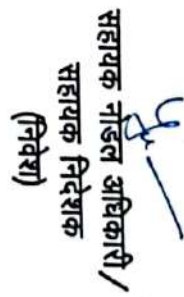 सहायक नोडल अधिकारी/
सहायक निदेशक
(निवेश)